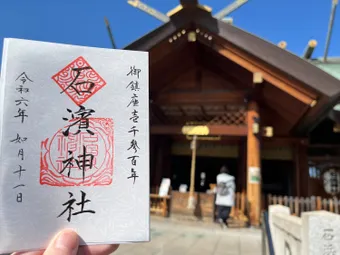 御鎮座壱千参百年
石濱神社
令和六年 如月十一日